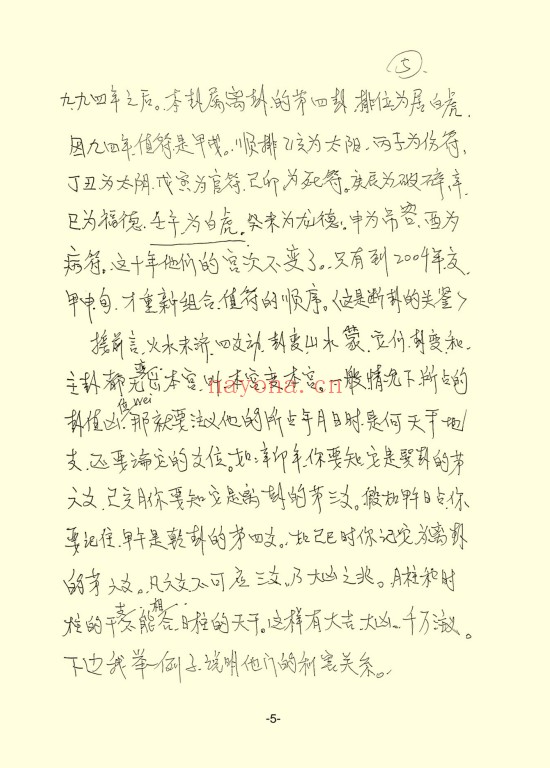 ⑤.
九、九四年之后。本卦属离卦的第四卦.排位为居白虎.
因九四年值符是甲戌。顺排乙亥为太阳.丙子为伤符,
丁丑为太阴.戊寅为官符.己卯为死符.庚辰为破碎,辛
巳为福德.壬午为白虎.癸未为龙德.申为吊客.酉为
病符。这十年他们的宫次不变了。只有到2004年交
甲申旬.才重新组合.值符的顺序。〈这是断卦的关鉴〉
接前言.火水未济.四爻动.卦变山水蒙.它们.卦变和
主卦都 本宫. 本宫变本宫。一般情况下.所占的
卦值凶.那就要注议他的所占年月日时.是何天干地
值wei
支.还要论它的爻位。如:辛卯年.你要知它是巽卦的第
六爻.己亥月你要知它是离卦的第三爻。假如甲午日占.你
要记住.甲午是乾卦的第四爻。如己巳时你记它为离卦
的第六爻。凡六爻不可应三爻.乃大凶之兆。月柱和时
柱的干 能合日柱的天干。这样有大吉.大凶。千万注议。
相
下边我举一例子.说明他们的利害关系。
nayona.cn
-5-